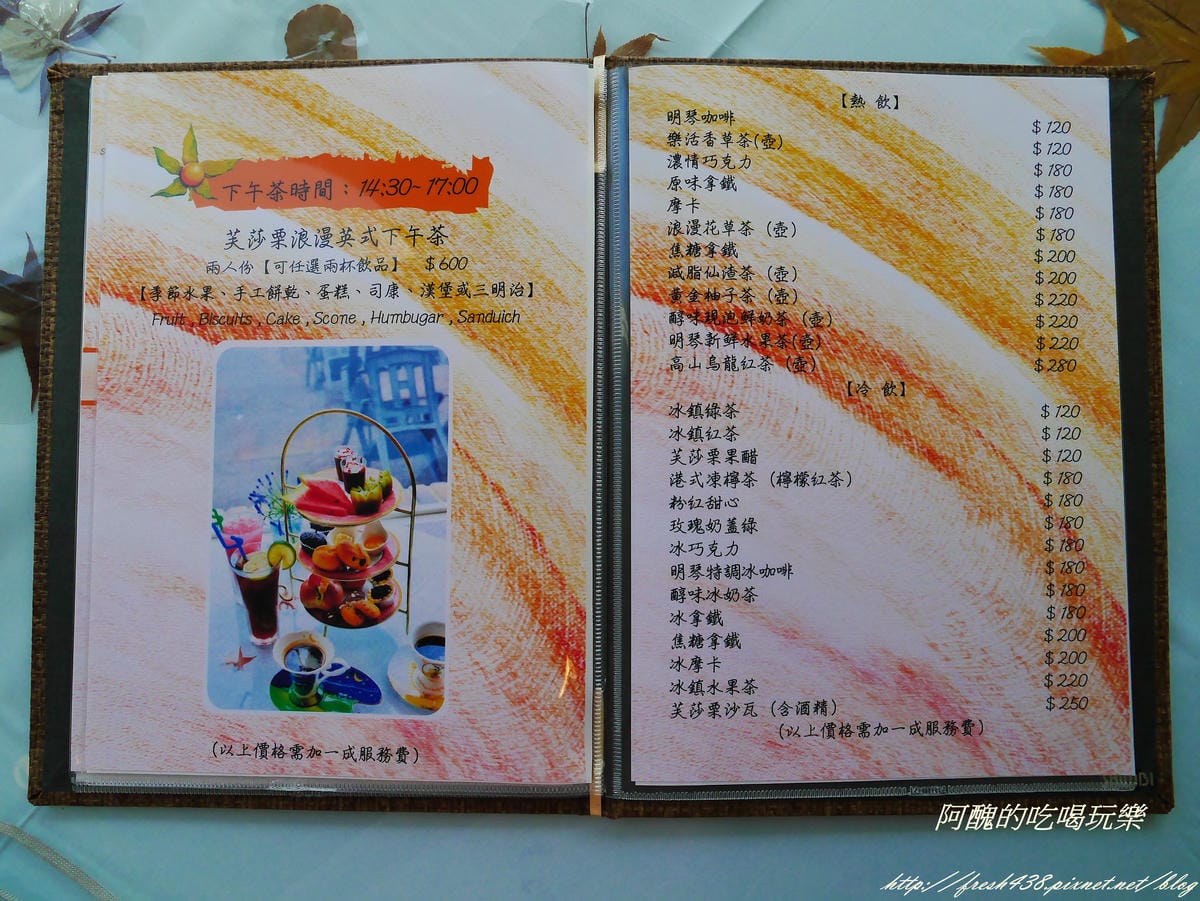 下午茶時間：14:30~17:00
芙莎栗浪漫英式下午茶
兩人份【可任選兩杯飲品】 $600
【季節水果、手工餅乾、蛋糕、司康、漢堡或三明治】
Fruit , Biscuits , Cake , Scone , Humbugar , Sanduich
(以上價格需加一成服務費)
【熱 飲】
明琴咖啡 $120
樂活香草茶(壺) $120
濃情巧克力 $180
原味拿鐵 $180
摩卡 $180
浪漫花草茶（壺） $180
焦糖拿鐵 $200
減脂仙渣茶（壺） $200
黃金柚子茶（壺） $220
醇味現泡鮮奶茶（壺） $220
明琴新鮮水果茶(壺) $220
高山烏龍紅茶（壺） $280
【冷 飲】
冰鎮綠茶 $120
冰鎮紅茶 $120
芙莎栗果醋 $120
港式凍檸茶（檸檬紅茶） $180
粉紅甜心 $180
玫瑰奶蓋綠 $180
冰巧克力 $180
明琴特調冰咖啡 $180
醇味冰奶茶 $180
冰拿鐵 $180
焦糖拿鐵 $200
冰摩卡 $200
冰鎮水果茶 $220
芙莎栗沙瓦（含酒精） $250
(以上價格需加一成服務費)
阿醜的吃喝玩樂
http://fresh438.pixnet.net/blog